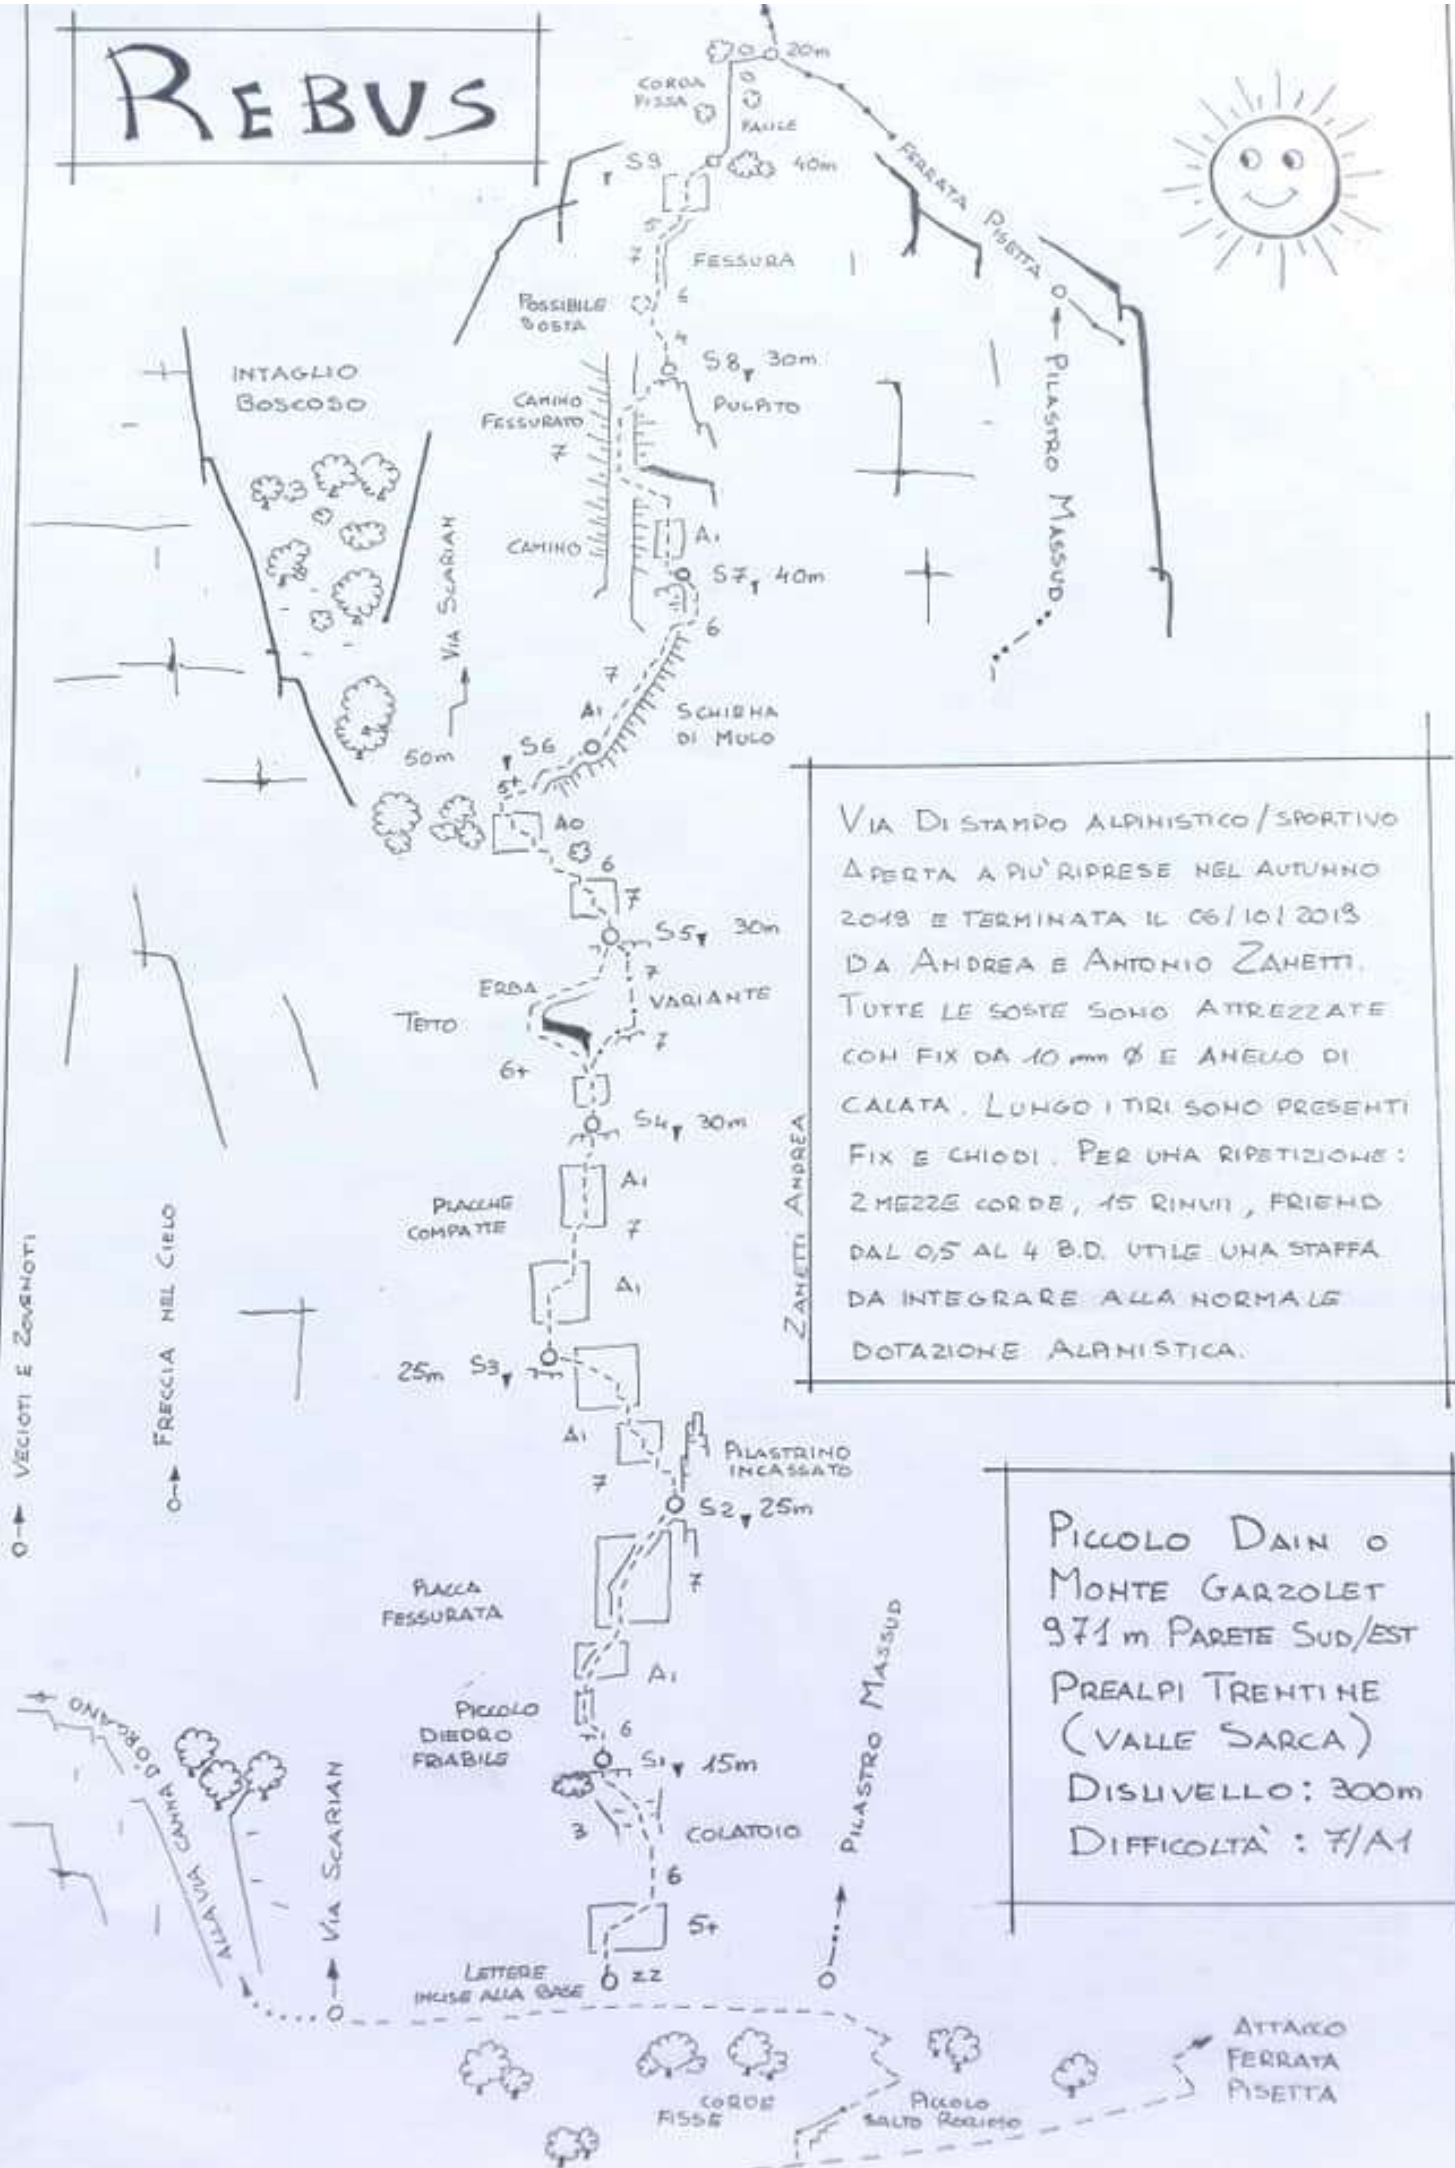 REBUS
20m
CORDA
FISSA
FACILE
S9
40m
FERRATA PISETTA
5
7
FESSURA
6
POSSIBILE
SOSTA
4
S8 30m
PULPITO
INTAGLIO
BOSCOSO
CAMINO
FESSURATO
7
PILASTRO MASSUD
CAMINO
A1
S7 40m
6
VIA SCARIAN
7
A1
SCHIENA
DI MULO
50m
S6
5+
A0
6
7
S5 30m
ERBA
7
VARIANTE
TETTO
7
6+
S4 30m
A1
PLACCHE
COMPATTE
7
A1
25m S3
A1
7
PILASTRINO
INCASSATO
S2 25m
7
PLACCA
FESSURATA
A1
PICCOLO
DIEDRO
FRIABILE
6
S1 15m
3
COLATOIO
6
5+
LETTERE
INCISE ALLA BASE
ZZ
VECIOTI E ZOVENOTI
FRECCIA NEL CIELO
ALLA VIA CANNA D'ORGANO
VIA SCARIAN
PILASTRO MASSUD
ATTACCO
FERRATA
PISETTA
CORDE
FISSE
PICCOLO
SALTO ROCCIOSO
VIA DI STAMPO ALPINISTICO/SPORTIVO
APERTA A PIU' RIPRESE NEL AUTUNNO
2019 E TERMINATA IL 06/10/2019
DA ANDREA E ANTONIO ZANETTI.
TUTTE LE SOSTE SONO ATTREZZATE
CON FIX DA 10 mm Ø E ANELLO DI
CALATA. LUNGO I TIRI SONO PRESENTI
FIX E CHIODI. PER UNA RIPETIZIONE:
2 MEZZE CORDE, 15 RINVII, FRIEND
DAL 0,5 AL 4 B.D. UTILE UNA STAFFA
DA INTEGRARE ALLA NORMALE
DOTAZIONE ALPINISTICA.
ZANETTI ANDREA
PICCOLO DAIN O
MONTE GARZOLET
971 m PARETE SUD/EST
PREALPI TRENTINE
(VALLE SARCA)
DISLIVELLO: 300m
DIFFICOLTÀ: 7/A1